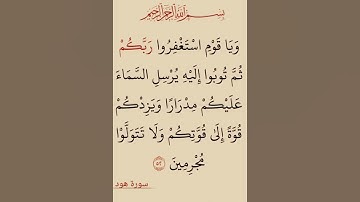 بسم الله الرحمن الرحيم
وَيَا قَوْمِ اسْتَغْفِرُوا رَبَّكُمْ
ثُمَّ تُوبُوا إِلَيْهِ يُرْسِلِ السَّمَاءَ
عَلَيْكُمْ مِدْرَارًا وَيَزِدْكُمْ
قُوَّةً إِلَىٰ قُوَّتِكُمْ وَلَا تَتَوَلَّوْا
مُجْرِمِينَ ٥٢
سورة هود